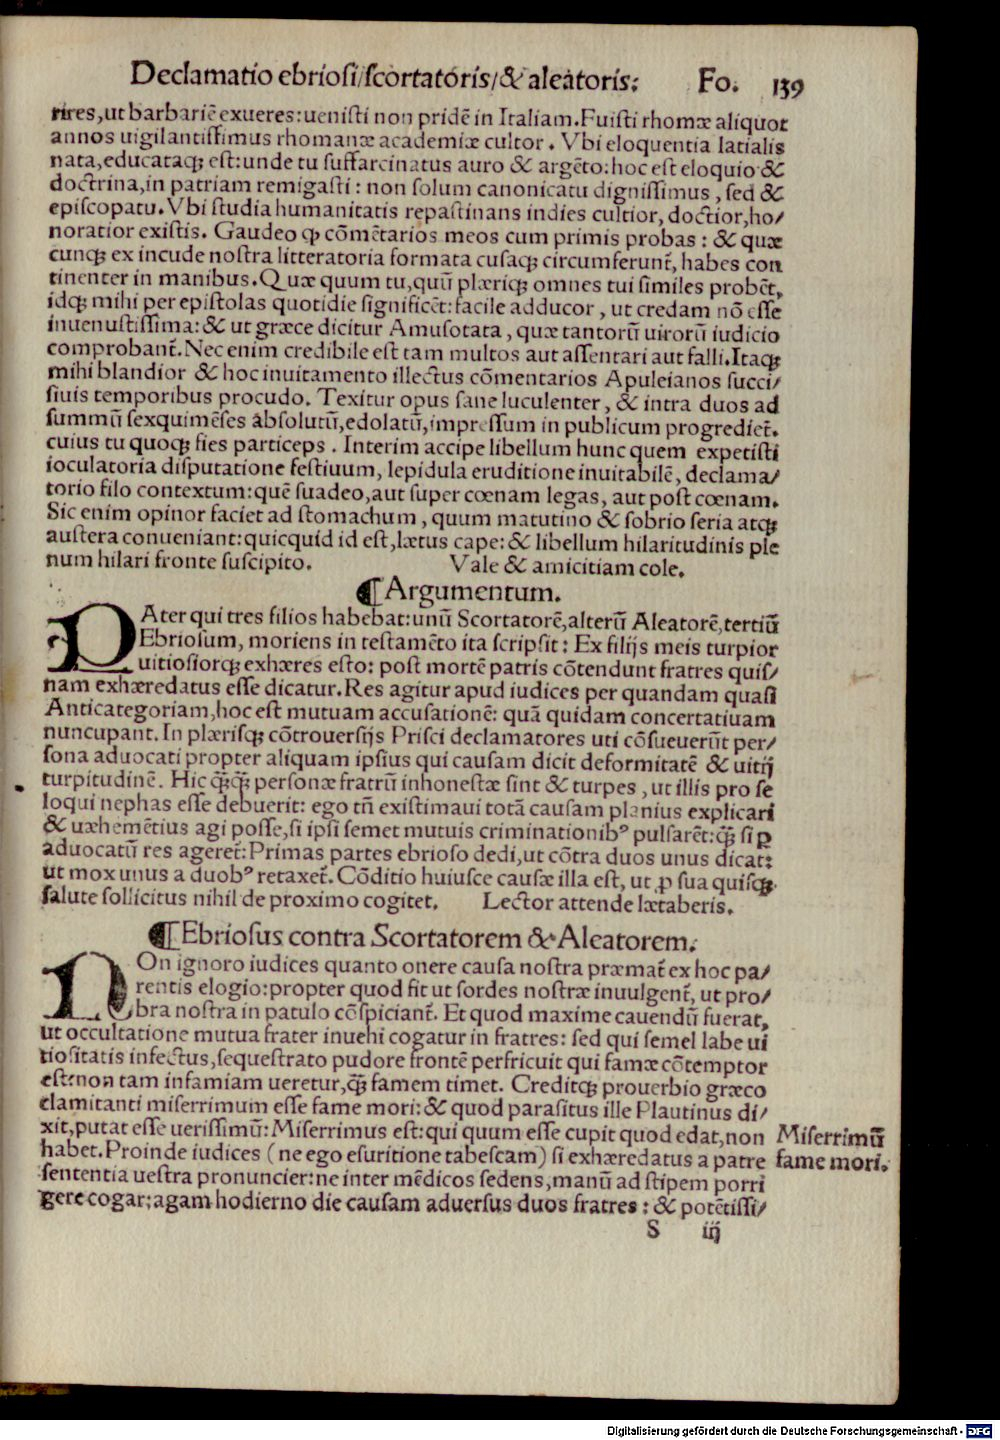 Declamatio ebriosi/scortatoris/& aleatoris: Fo. 139
rires,ut barbariē exueres:uenisti non pridē in Italiam.Fuisti rhomæ aliquot
annos uigilantissimus rhomanæ academiæ cultor . Vbi eloquentia latialis
nata,educataqꝫ est:unde tu suffarcinatus auro & argēto:hoc est eloquio &
doctrina,in patriam remigasti : non solum canonicatu dignissimus , sed &
episcopatu.Vbi studia humanitatis repastinans indies cultior, doctior,ho/
noratior existis. Gaudeo ꝙ cōmētarios meos cum primis probas : & quæ
cunqꝫ ex incude nostra litteratoria formata cusaqꝫ circumferunt̄, habes con
tinenter in manibus.Quæ quum tu,quū plæriqꝫ omnes tui similes probēt,
idqꝫ mihi per epistolas quotidie significēt:facile adducor , ut credam nō esse
inuenustissima:& ut græce dicitur Amusotata , quæ tantorū uirorū iudicio
comprobant̄.Nec enim credibile est tam multos aut assentari aut falli.Itaqꝫ
mihi blandior & hoc inuitamento illectus cōmentarios Apuleianos succi/
siuis temporibus procudo. Texitur opus sane luculenter, & intra duos ad
summū sexquimēses absolutū,edolatū,impressum in publicum progrediet̄.
cuius tu quoqꝫ fies particeps . Interim accipe libellum hunc quem expetisti
ioculatoria disputatione festiuum, lepidula eruditione inuitabilē, declama/
torio filo contextum:quē suadeo,aut super cœnam legas, aut post cœnam.
Sic enim opinor faciet ad stomachum , quum matutino & sobrio seria atqꝫ
austera conueniant:quicquid id est,lætus cape:& libellum hilaritudinis ple
num hilari fronte suscipito. Vale & amicitiam cole.
¶Argumentum.
PAter qui tres filios habebat:unū Scortatorē,alterū Aleatorē,tertiū
Ebriosum, moriens in testamēto ita scripsit : Ex filijs meis turpior
uitiosiorqꝫ exhæres esto: post mortē patris cōtendunt fratres quis/
nam exhæredatus esse dicatur.Res agitur apud iudices per quandam quasi
Anticategoriam,hoc est mutuam accusationē: quā quidam concertatiuam
nuncupant.In plærisqꝫ cōtrouersijs Prisci declamatores uti cōsueuerūt per/
sona aduocati propter aliquam ipsius qui causam dicit deformitatē & uitij
turpitudinē. Hic qꝫ̄qꝫ̄ personæ fratrū inhonestæ sint & turpes , ut illis pro se
loqui nephas esse debuerit: ego tn̄ existimaui totā causam planius explicari
& uæhemētius agi posse,si ipsi semet mutuis criminationibꝰ pulsarēt:qꝫ̄ si ꝑ
aduocatū res ageret̄:Primas partes ebrioso dedi,ut cōtra duos unus dicat:
ut mox unus a duobꝰ retaxet̄. Cōditio huiusce causæ illa est, ut ꝓ sua quisqꝫ
salute sollicitus nihil de proximo cogitet. Lector attende lætaberis.
¶Ebriosus contra Scortatorem & Aleatorem.
NOn ignoro iudices quanto onere causa nostra præmat̄ ex hoc pa/
rentis elogio:propter quod fit ut sordes nostræ inuulgent̄, ut pro/
bra nostra in patulo cōspiciant̄. Et quod maxime cauendū fuerat,
ut occultatione mutua frater inuehi cogatur in fratres: sed qui semel labe ui
tiositatis infectus,sequestrato pudore frontē perfricuit qui famæ cōtemptor
est:non tam infamiam ueretur,qꝫ̄ famem timet. Creditqꝫ prouerbio græco
clamitanti miserrimum esse fame mori:& quod parasitus ille Plautinus di/
xit,putat esse uerissimū:Miserrimus est:qui quum esse cupit quod edat,non
habet.Proinde iudices (ne ego esuritione tabescam) si exhæredatus a patre
sententia uestra pronuncier:ne inter mēdicos sedens,manū ad stipem porri
gere cogar:agam hodierno die causam aduersus duos fratres : & potētissi/
Miserrimū
fame mori.
S iij
Digitalisierung gefördert durch die Deutsche Forschungsgemeinschaft - DFG